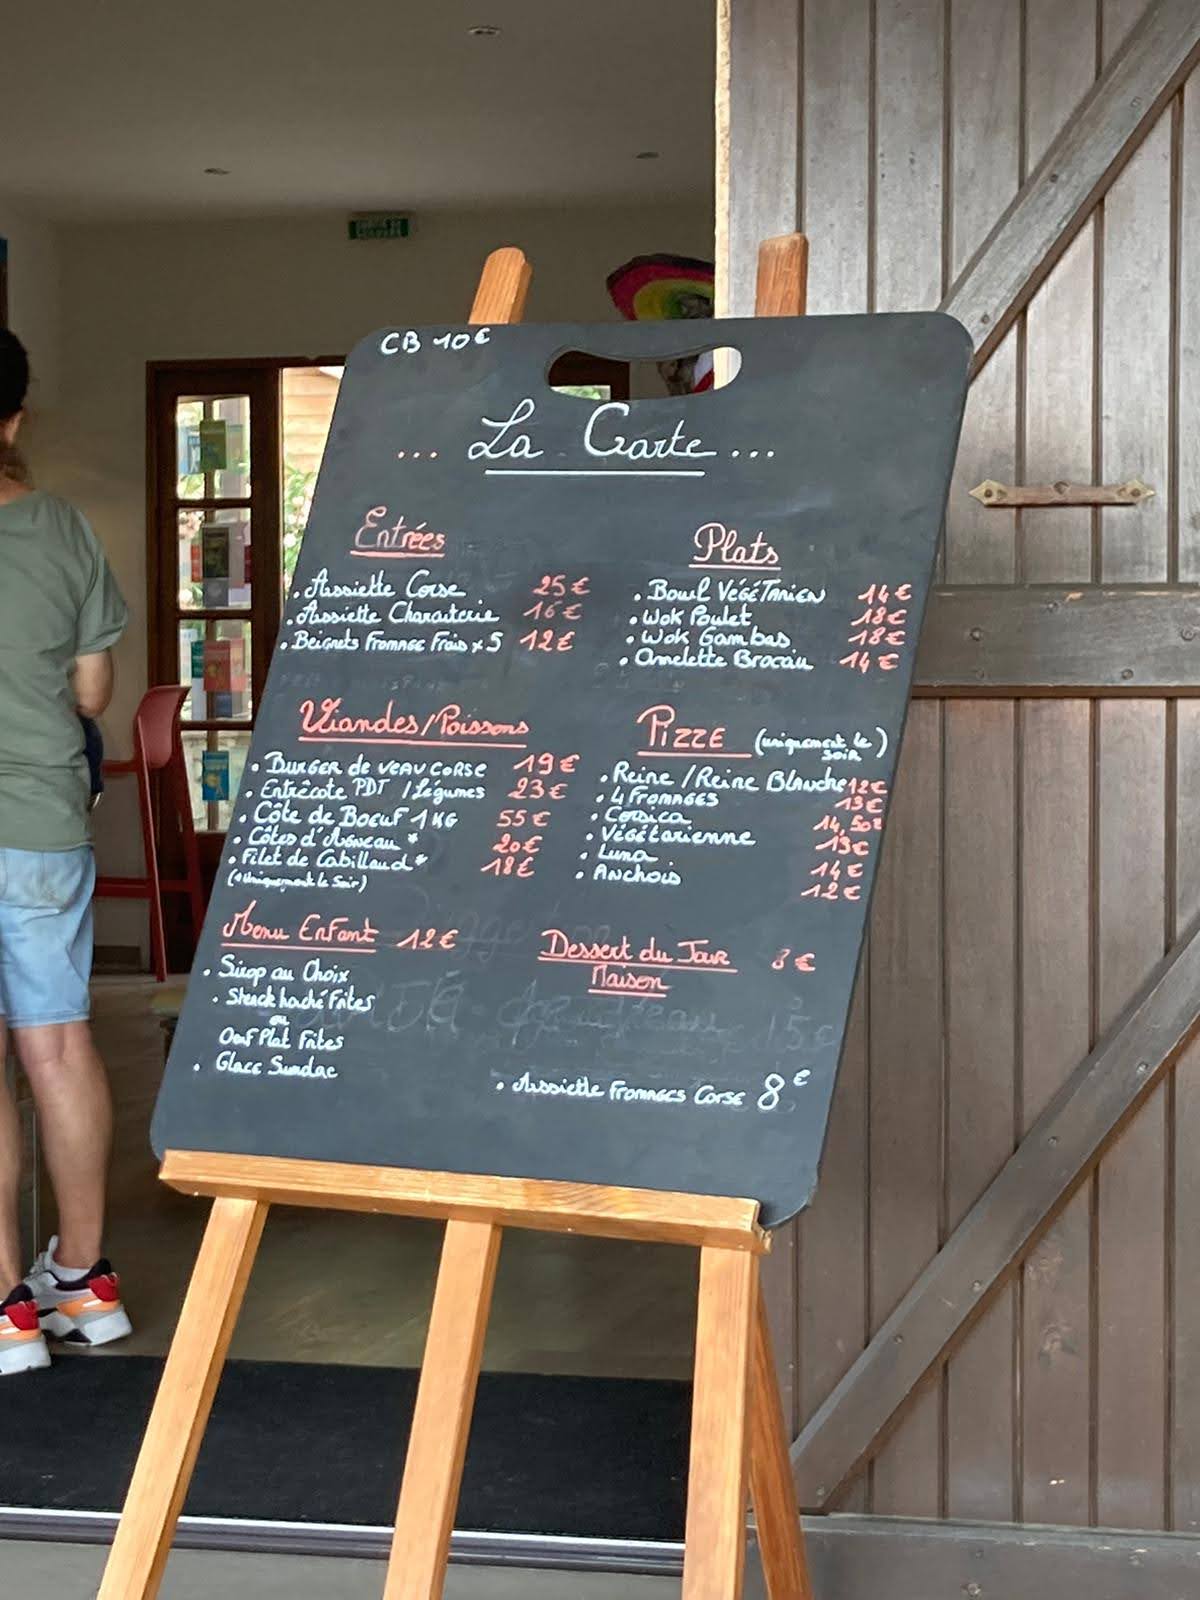 CB 10€
... La Carte ...
Entrées
. Assiette Corse 25€
. Assiette Charcuterie 16€
. Beignets Fromage Frais x 5 12€
Plats
. Bowl VÉGÉTARIEN 14€
. Wok Poulet 18€
. Wok Gambas 18€
. Omelette Brocciu 14€
Viandes/Poissons
. BURGER de VEAU CORSE 19€
. Entrêcote PDT / Légumes 23€
. Côte de BOEUF 1KG 55€
. Côtes d'AGNEAU * 20€
. Filet de Cabillaud * 18€
(* Uniquement le Soir)
PIZZE (uniquement le SOIR)
. Reine / Reine Blanche 12€
. 4 FROMAGES 13€
. Corsica 14,50€
. Végétarienne 13€
. Luna 14€
. Anchois 12€
Menu Enfant 12€
. Sirop au Choix
. Steack haché Frites
ou
Oeuf Plat Frites
. Glace Sundae
Dessert du Jour 8€
Maison
. Assiette FROMAGES CORSE 8€